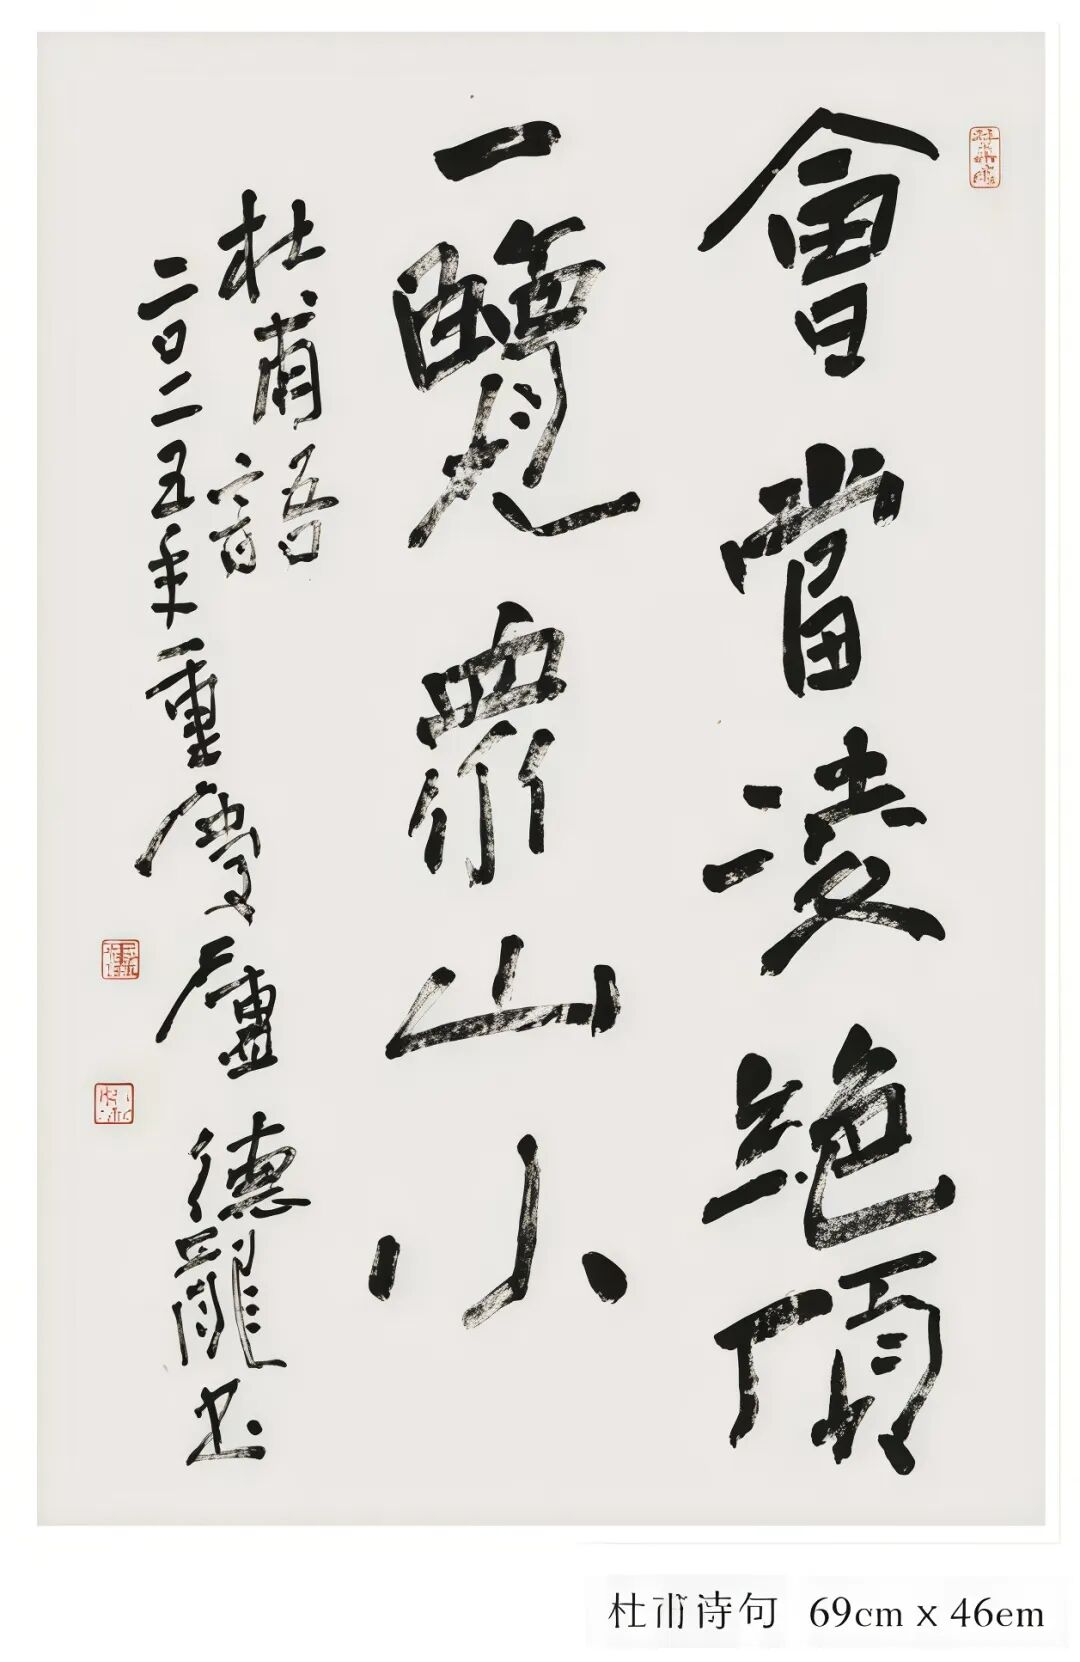 會當凌絕頂
一覽眾山小
杜甫語
二〇二五年重慶廬德龍書
杜甫诗句 69cm x 46em